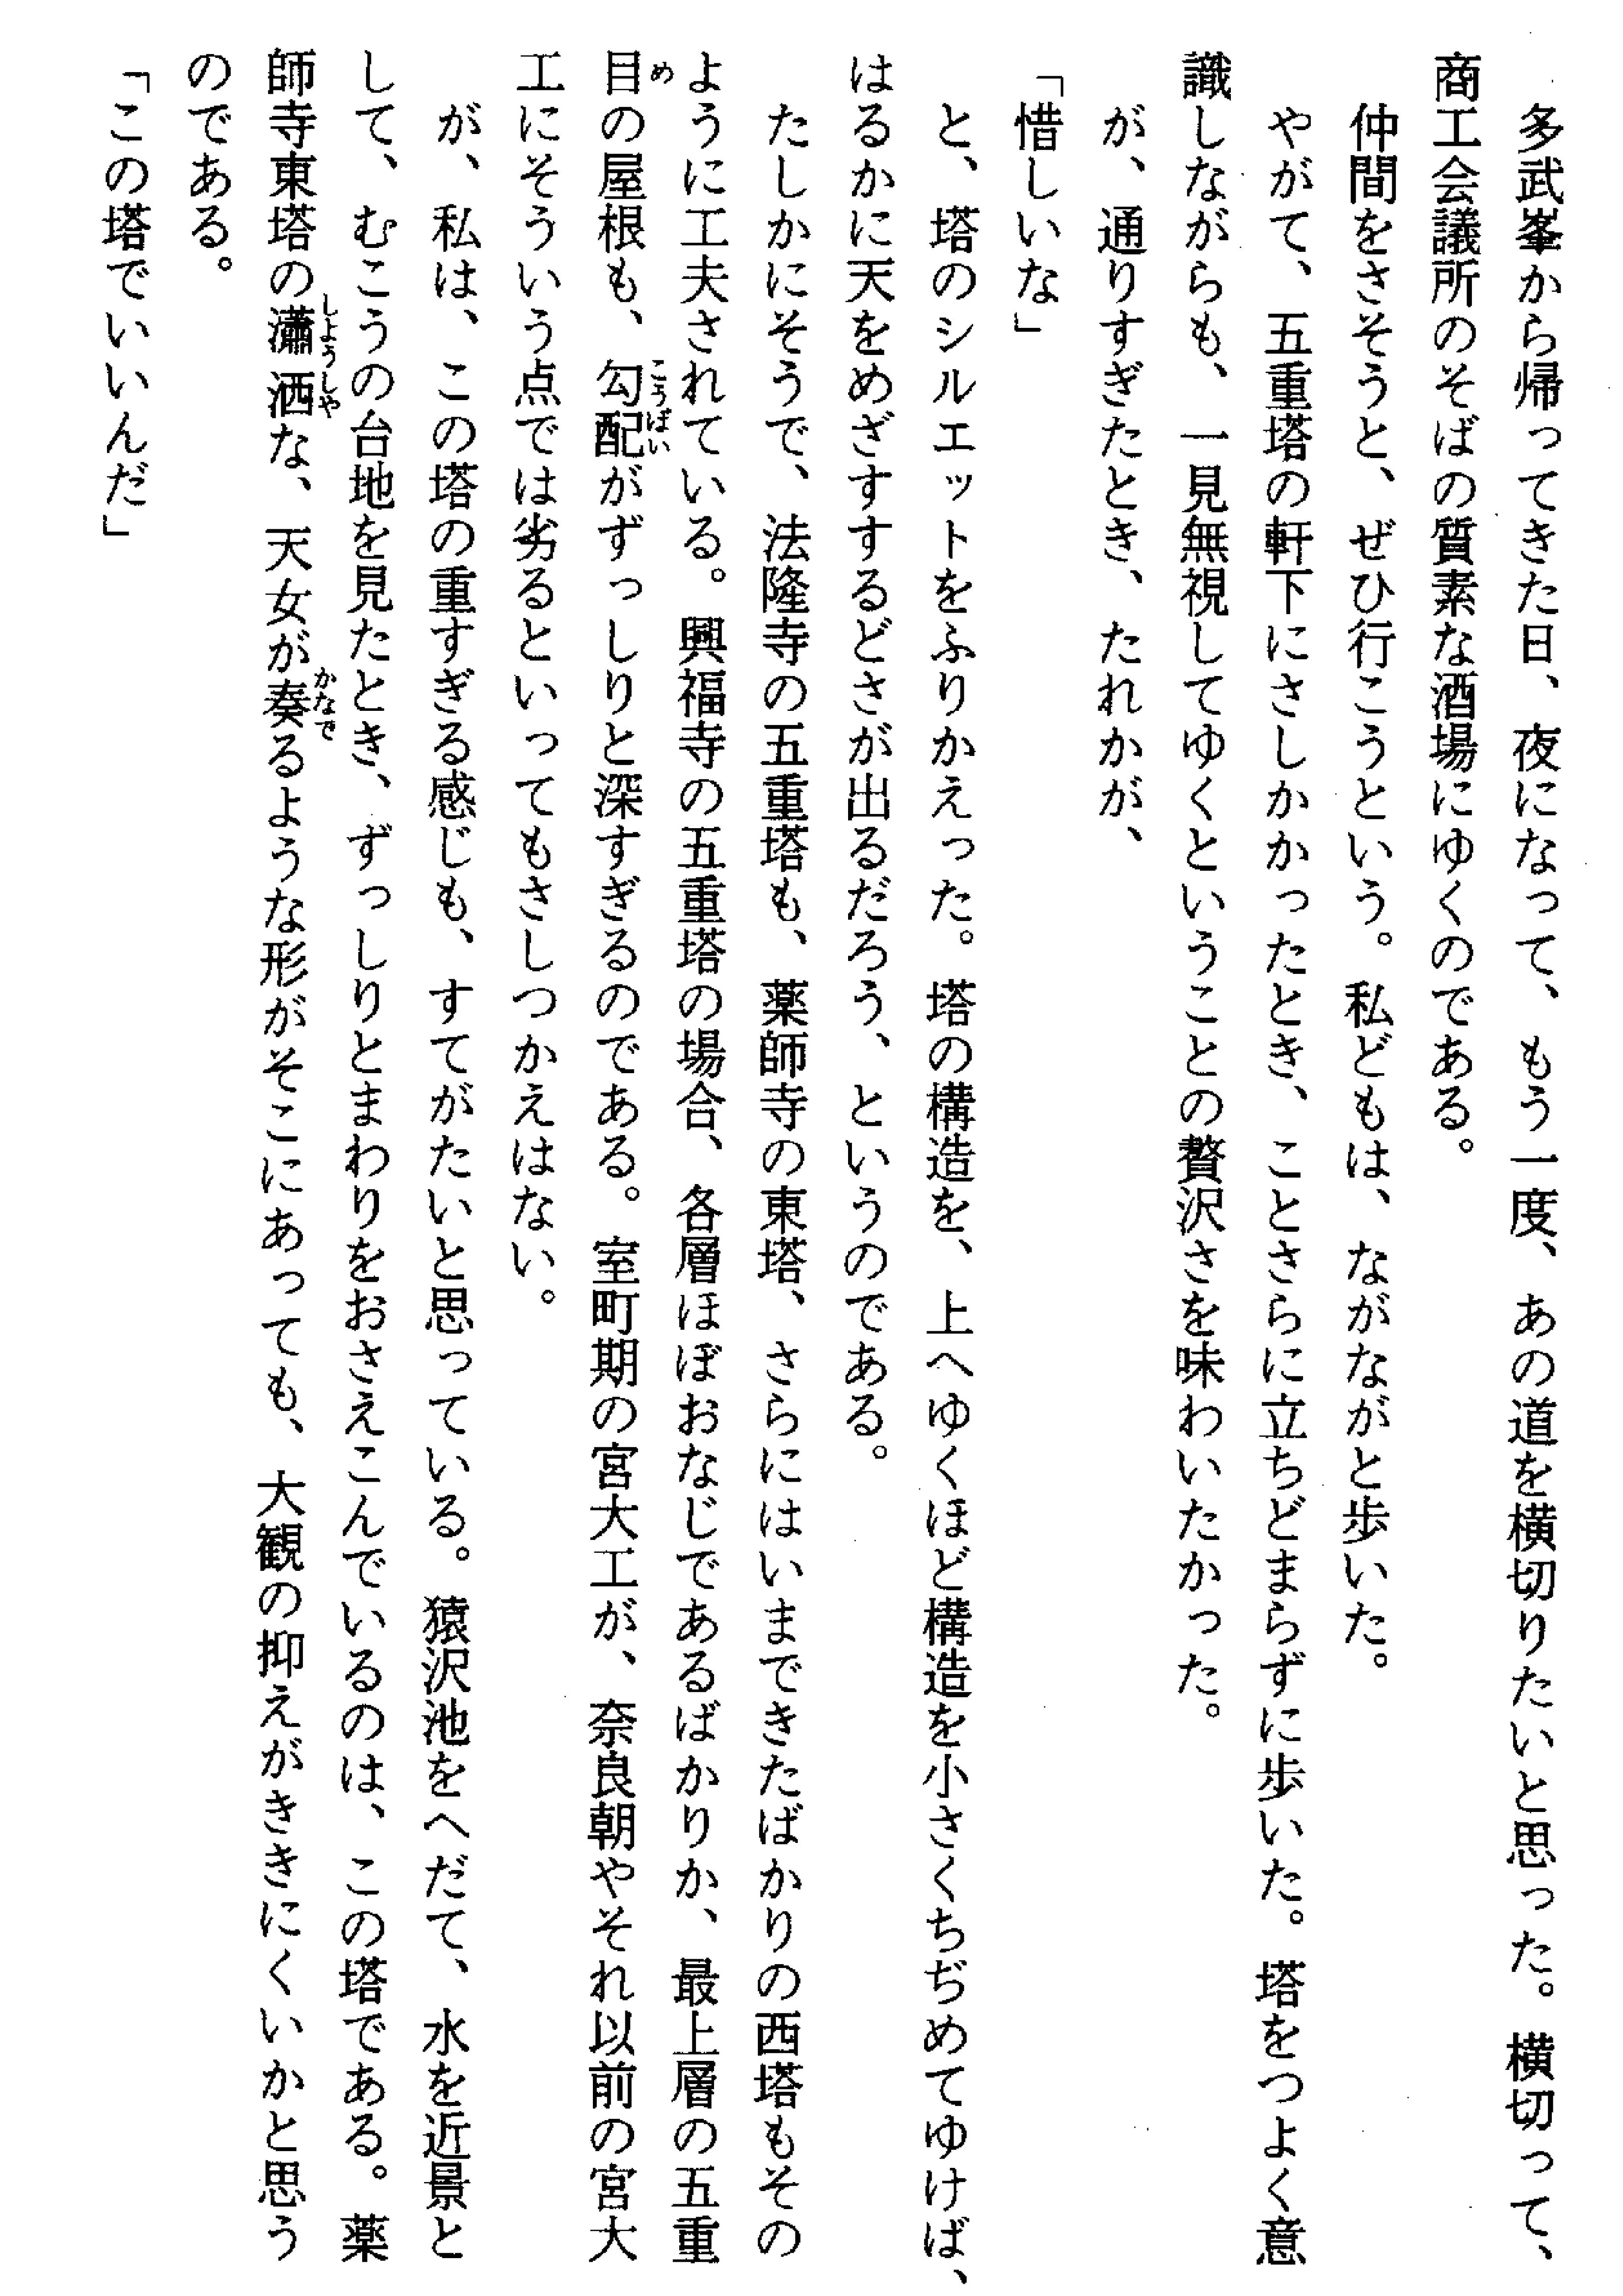 多武峯から帰ってきた日、夜になって、もう一度、あの道を横切りたいと思った。横切って、
商工会議所のそばの質素な酒場にゆくのである。
仲間をさそうと、ぜひ行こうという。私どもは、ながながと歩いた。
やがて、五重塔の軒下にさしかかったとき、ことさらに立ちどまらずに歩いた。塔をつよく意
識しながらも、一見無視してゆくということの贅沢さを味わいたかった。
が、通りすぎたとき、たれかが、
「惜しいな」
と、塔のシルエットをふりかえった。塔の構造を、上へゆくほど構造を小さくちぢめてゆけば、
はるかに天をめざすするどさが出るだろう、というのである。
たしかにそうで、法隆寺の五重塔も、薬師寺の東塔、さらにはいまできたばかりの西塔もその
ように工夫されている。興福寺の五重塔の場合、各層ほぼおなじであるばかりか、最上層の五重
目めの屋根も、勾配こうばいがずっしりと深すぎるのである。室町期の宮大工が、奈良朝やそれ以前の宮大
工にそういう点では劣るといってもさしつかえはない。
が、私は、この塔の重すぎる感じも、すてがたいと思っている。猿沢池をへだて、水を近景と
して、むこうの台地を見たとき、ずっしりとまわりをおさえこんでいるのは、この塔である。薬
師寺東塔の瀟洒しようしやな、天女が奏かなでるような形がそこにあっても、大観の抑えがききにくいかと思う
のである。
「この塔でいいんだ」